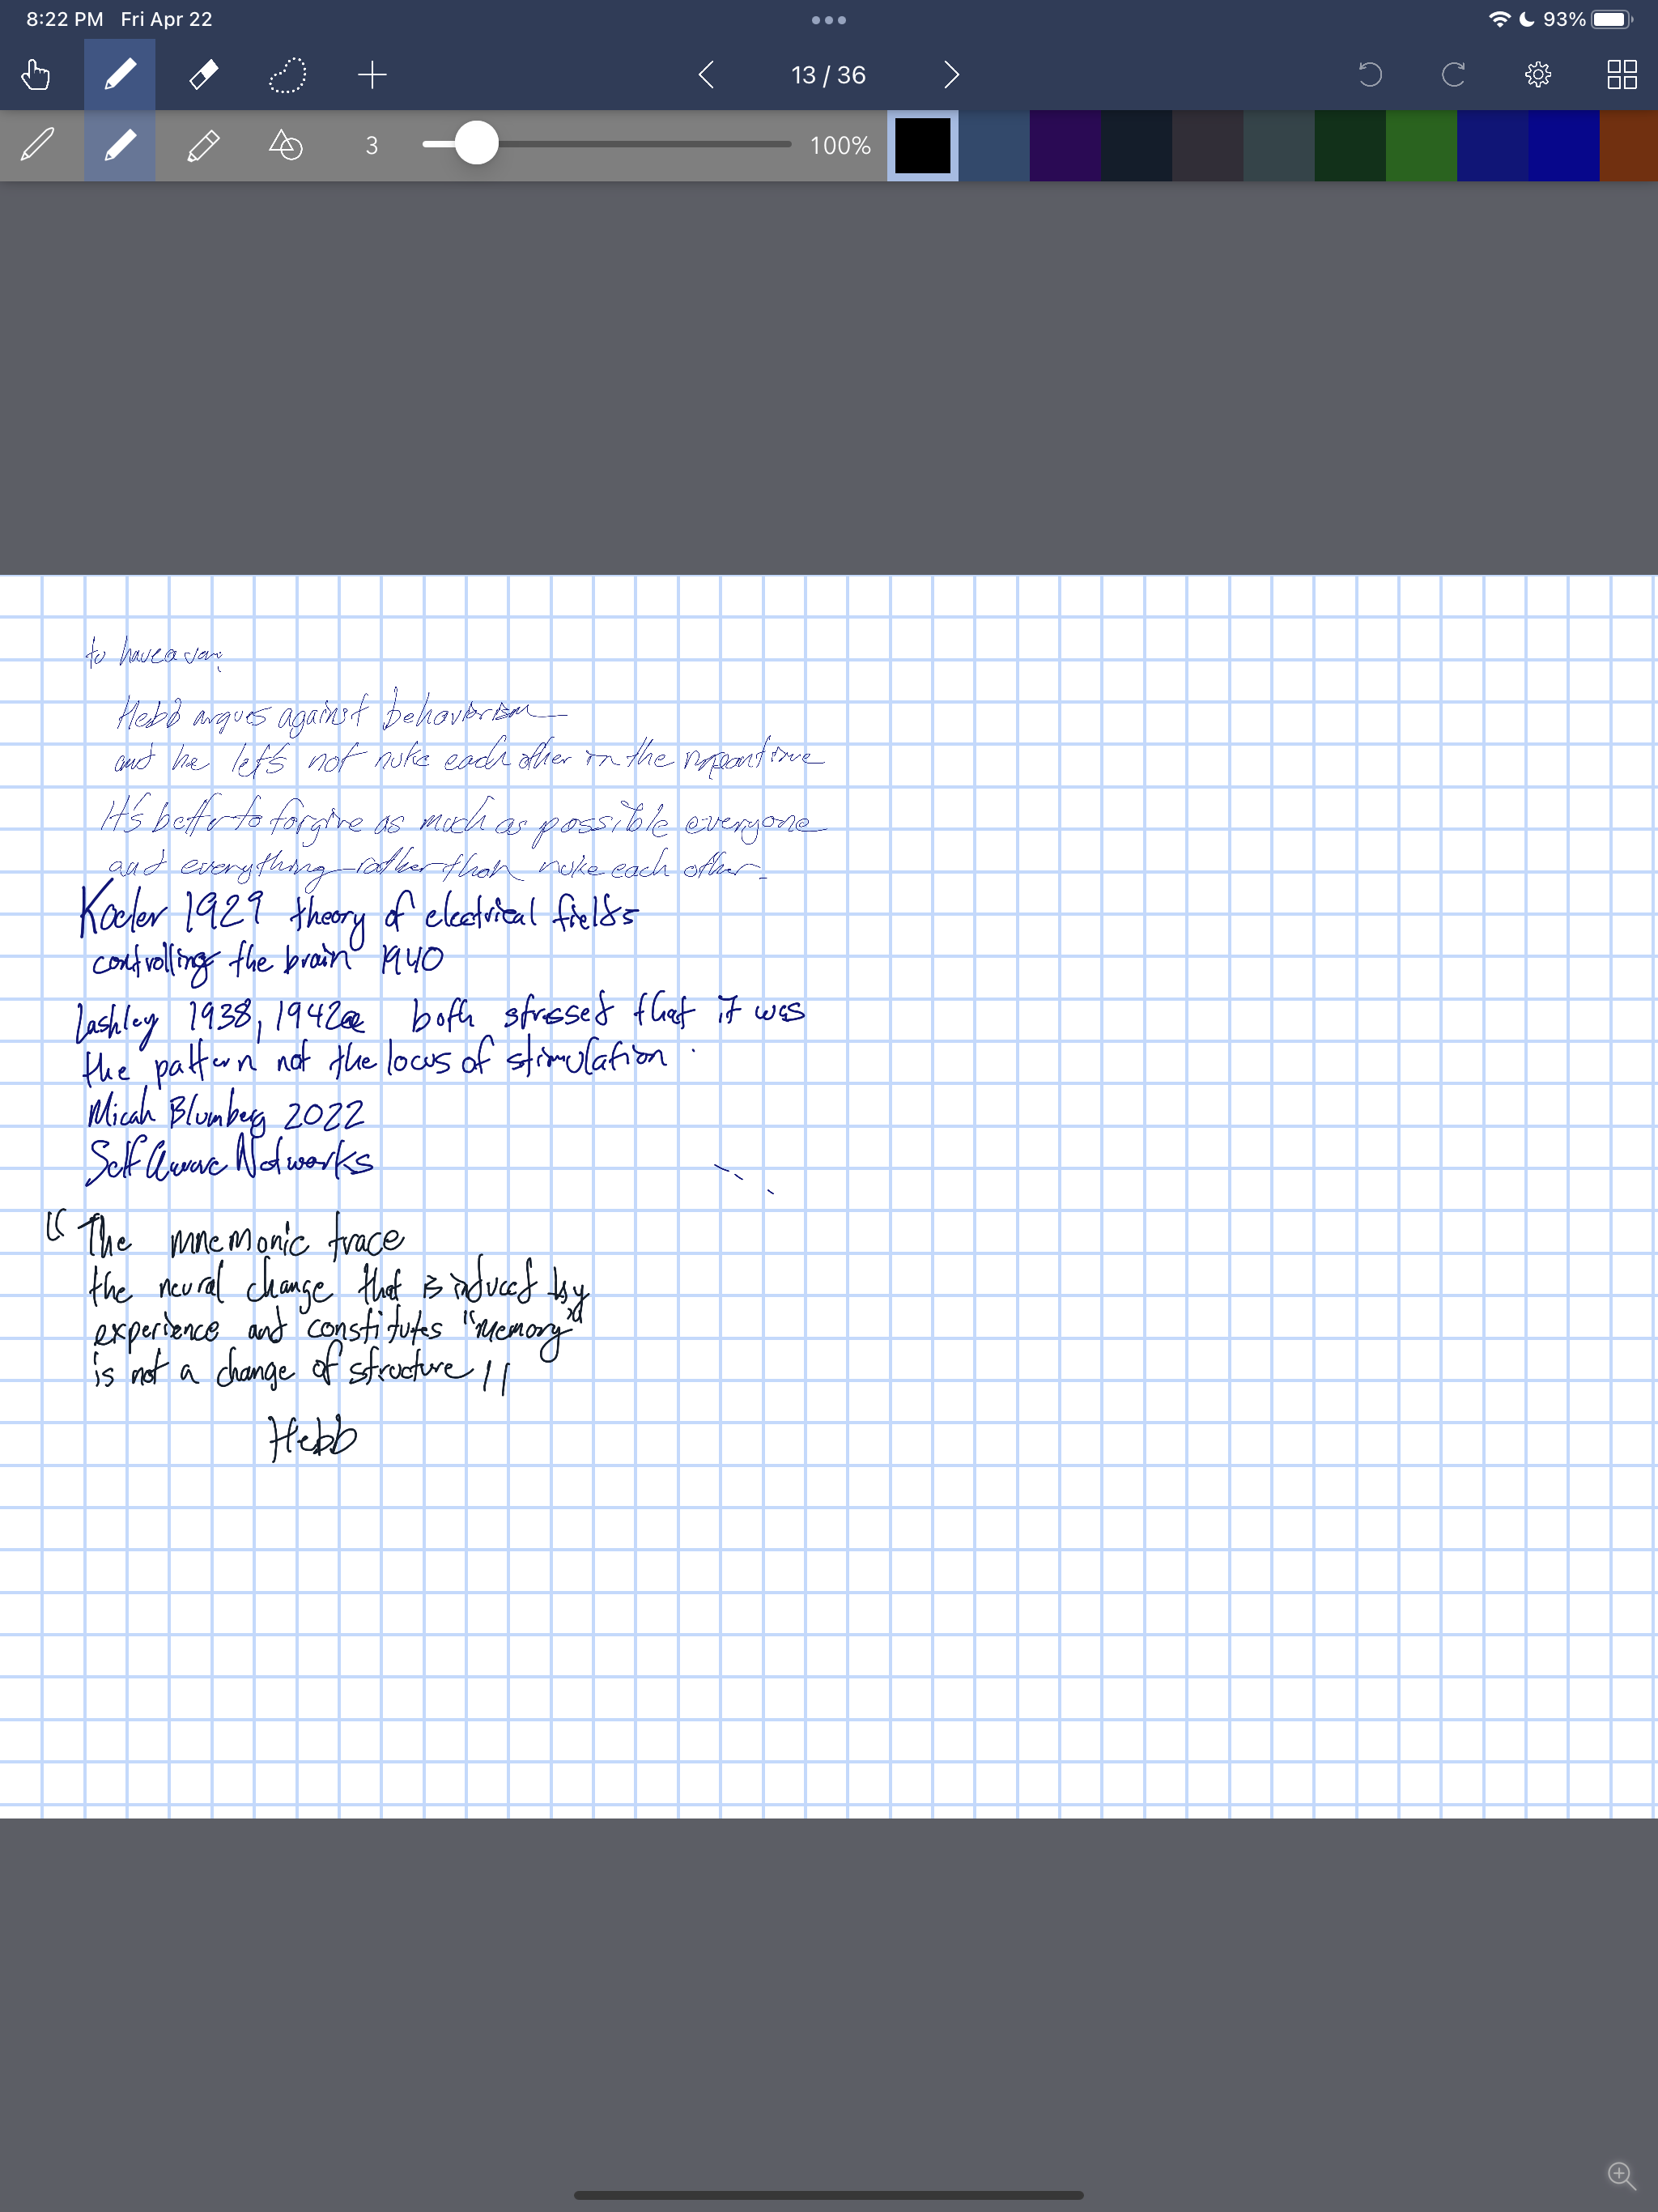 8:22 PM Fri Apr 22
93%
13 / 36
3
100%
to have a
Hebb argues against behaviorism
and he let's not nuke each other in the meantime
It's better to forgive as much as possible everyone
and everything rather than nuke each other.
Koeler 1929 theory of electrical fields
controlling the brain 1940
Lashley 1938, 1942a both stressed that it was
the pattern not the locus of stimulation.
Micah Blumberg 2022
Self Aware Networks
"The mnemonic trace
the neural change that is induced by
experience and constitutes "memory"
is not a change of structure"
Hebb